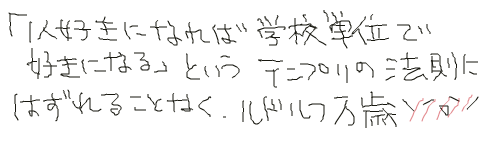 「1人好きになれば学校単位で
好きになる」という テニプリの法則に
はずれることなく、ルドルフ万歳ソング